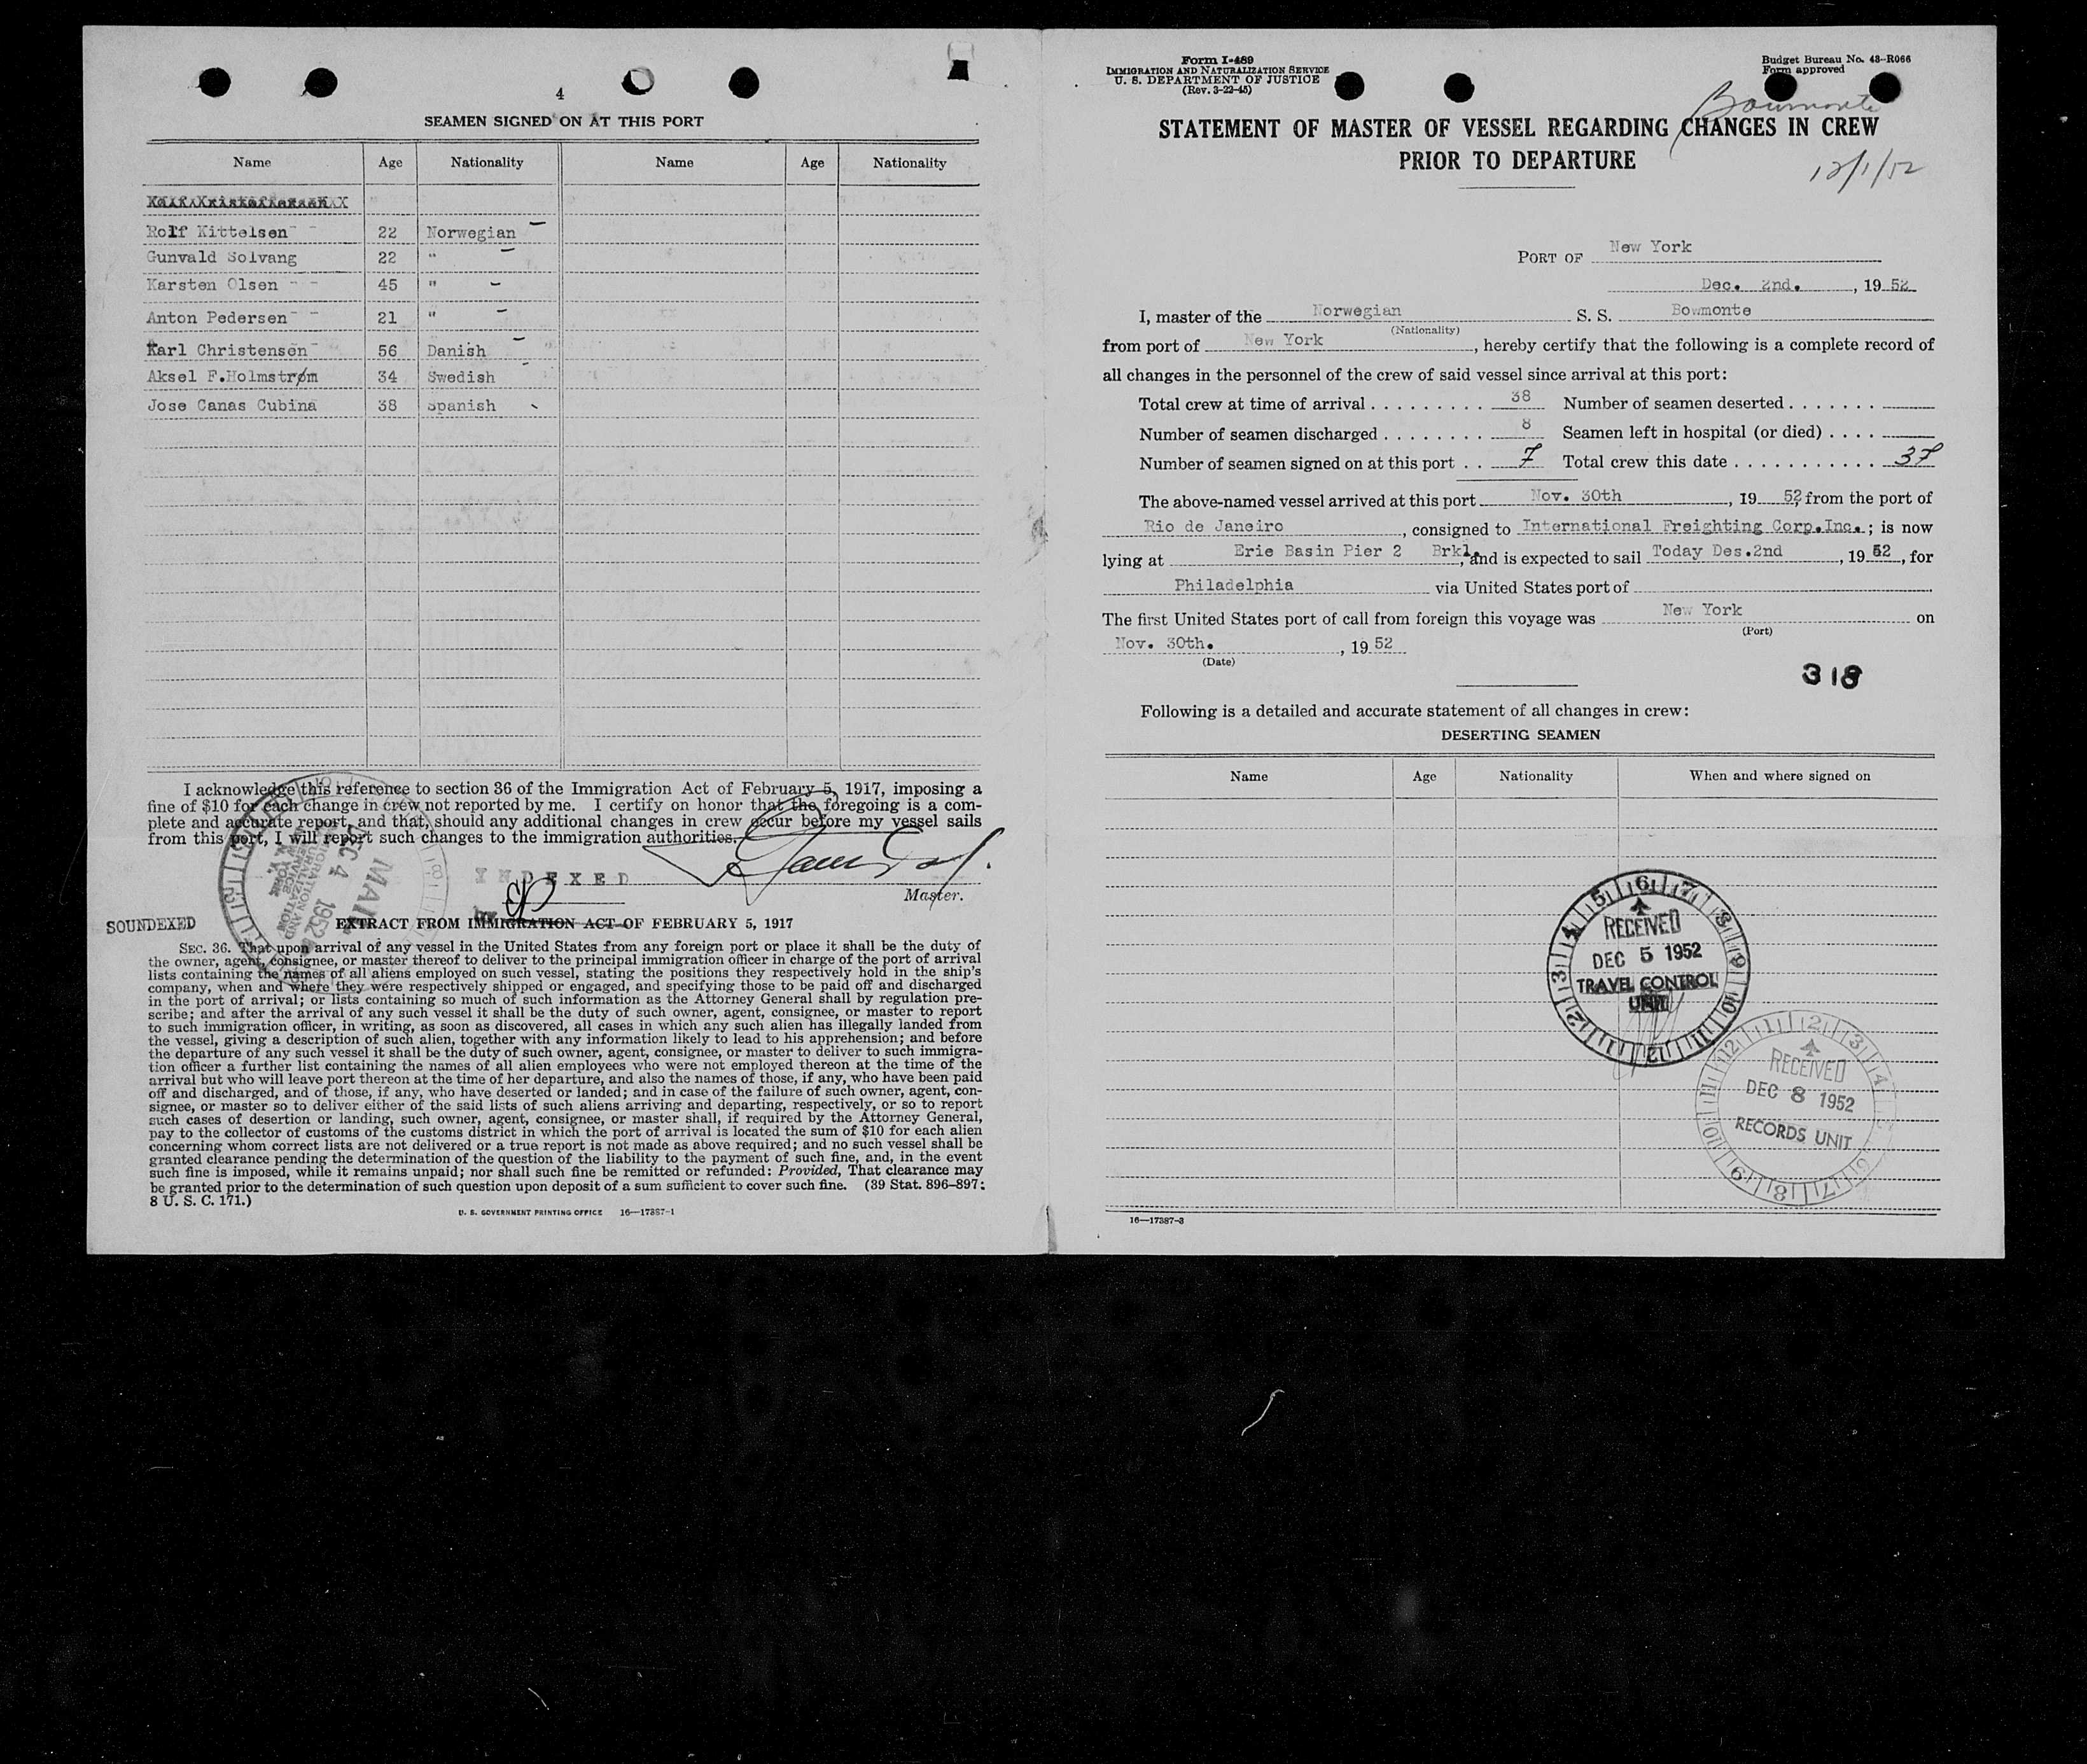 4
SEAMEN SIGNED ON AT THIS PORT
Name Age Nationality Name Age Nationality
Rolf Kittelsen 22 Norwegian
Gunvald Solvang 22 "
Karsten Olsen 45 "
Anton Pedersen 21 "
Karl Christensen 56 Danish
Aksel F.Holmstrøm 34 Swedish
Jose Canas Cubina 38 Spanish
I acknowledge this reference to section 36 of the Immigration Act of February 5, 1917, imposing a
fine of $10 for each change in crew not reported by me. I certify on honor that the foregoing is a com-
plete and accurate report, and that, should any additional changes in crew occur before my vessel sails
from this port, I will report such changes to the immigration authorities.
INDEXED
Master.
SOUNDEXED
MAIL
DEC 4 1952
IMMIGRATION AND
NATURALIZATION
SERVICE
N. Y.
EXTRACT FROM IMMIGRATION ACT OF FEBRUARY 5, 1917
SEC. 36. That upon arrival of any vessel in the United States from any foreign port or place it shall be the duty of
the owner, agent, consignee, or master thereof to deliver to the principal immigration officer in charge of the port of arrival
lists containing the names of all aliens employed on such vessel, stating the positions they respectively hold in the ship's
company, when and where they were respectively shipped or engaged, and specifying those to be paid off and discharged
in the port of arrival; or lists containing so much of such information as the Attorney General shall by regulation pre-
scribe; and after the arrival of any such vessel it shall be the duty of such owner, agent, consignee, or master to report
to such immigration officer, in writing, as soon as discovered, all cases in which any such alien has illegally landed from
the vessel, giving a description of such alien, together with any information likely to lead to his apprehension; and before
the departure of any such vessel it shall be the duty of such owner, agent, consignee, or master to deliver to such immigra-
tion officer a further list containing the names of all alien employees who were not employed thereon at the time of the
arrival but who will leave port thereon at the time of her departure, and also the names of those, if any, who have been paid
off and discharged, and of those, if any, who have deserted or landed; and in case of the failure of such owner, agent, con-
signee, or master so to deliver either of the said lists of such aliens arriving and departing, respectively, or so to report
such cases of desertion or landing, such owner, agent, consignee, or master shall, if required by the Attorney General,
pay to the collector of customs of the customs district in which the port of arrival is located the sum of $10 for each alien
concerning whom correct lists are not delivered or a true report is not made as above required; and no such vessel shall be
granted clearance pending the determination of the question of the liability to the payment of such fine, and, in the event
such fine is imposed, while it remains unpaid; nor shall such fine be remitted or refunded: Provided, That clearance may
be granted prior to the determination of such question upon deposit of a sum sufficient to cover such fine. (39 Stat. 896–897;
8 U. S. C. 171.)
U. S. GOVERNMENT PRINTING OFFICE 16—17387-1
Form I-489
IMMIGRATION AND NATURALIZATION SERVICE
U. S. DEPARTMENT OF JUSTICE
(Rev. 3-22-45)
Budget Bureau No. 43-R066
Form approved
Bowmonte
STATEMENT OF MASTER OF VESSEL REGARDING CHANGES IN CREW
PRIOR TO DEPARTURE
12/1/52
PORT OF New York
Dec. 2nd. , 19 52
I, master of the Norwegian S. S. Bowmonte
(Nationality)
from port of New York , hereby certify that the following is a complete record of
all changes in the personnel of the crew of said vessel since arrival at this port:
Total crew at time of arrival 38 Number of seamen deserted
Number of seamen discharged 8 Seamen left in hospital (or died)
Number of seamen signed on at this port 7 Total crew this date 37
The above-named vessel arrived at this port Nov. 30th , 19 52, from the port of
Rio de Janeiro , consigned to International Freighting Corp.Inc. ; is now
lying at Erie Basin Pier 2 Brkl. , and is expected to sail Today Des.2nd , 19 52 , for
Philadelphia via United States port of
The first United States port of call from foreign this voyage was New York on
(Port)
Nov. 30th. , 19 52
(Date)
318
Following is a detailed and accurate statement of all changes in crew:
DESERTING SEAMEN
Name Age Nationality When and where signed on
RECEIVED
DEC 5 1952
TRAVEL CONTROL
UNIT
RECEIVED
DEC 8 1952
RECORDS UNIT
16—17387-3